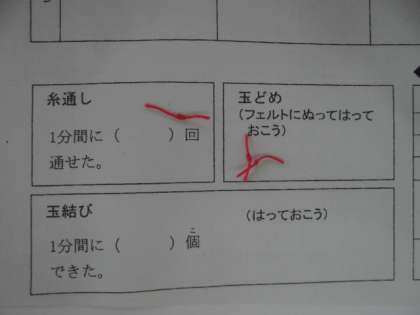 糸通し
1分間に（　　　）回
通せた。
玉どめ
(フェルトにぬってはって
おこう)
玉結び
(はっておこう)
1分間に（　　　）個
こ
できた。